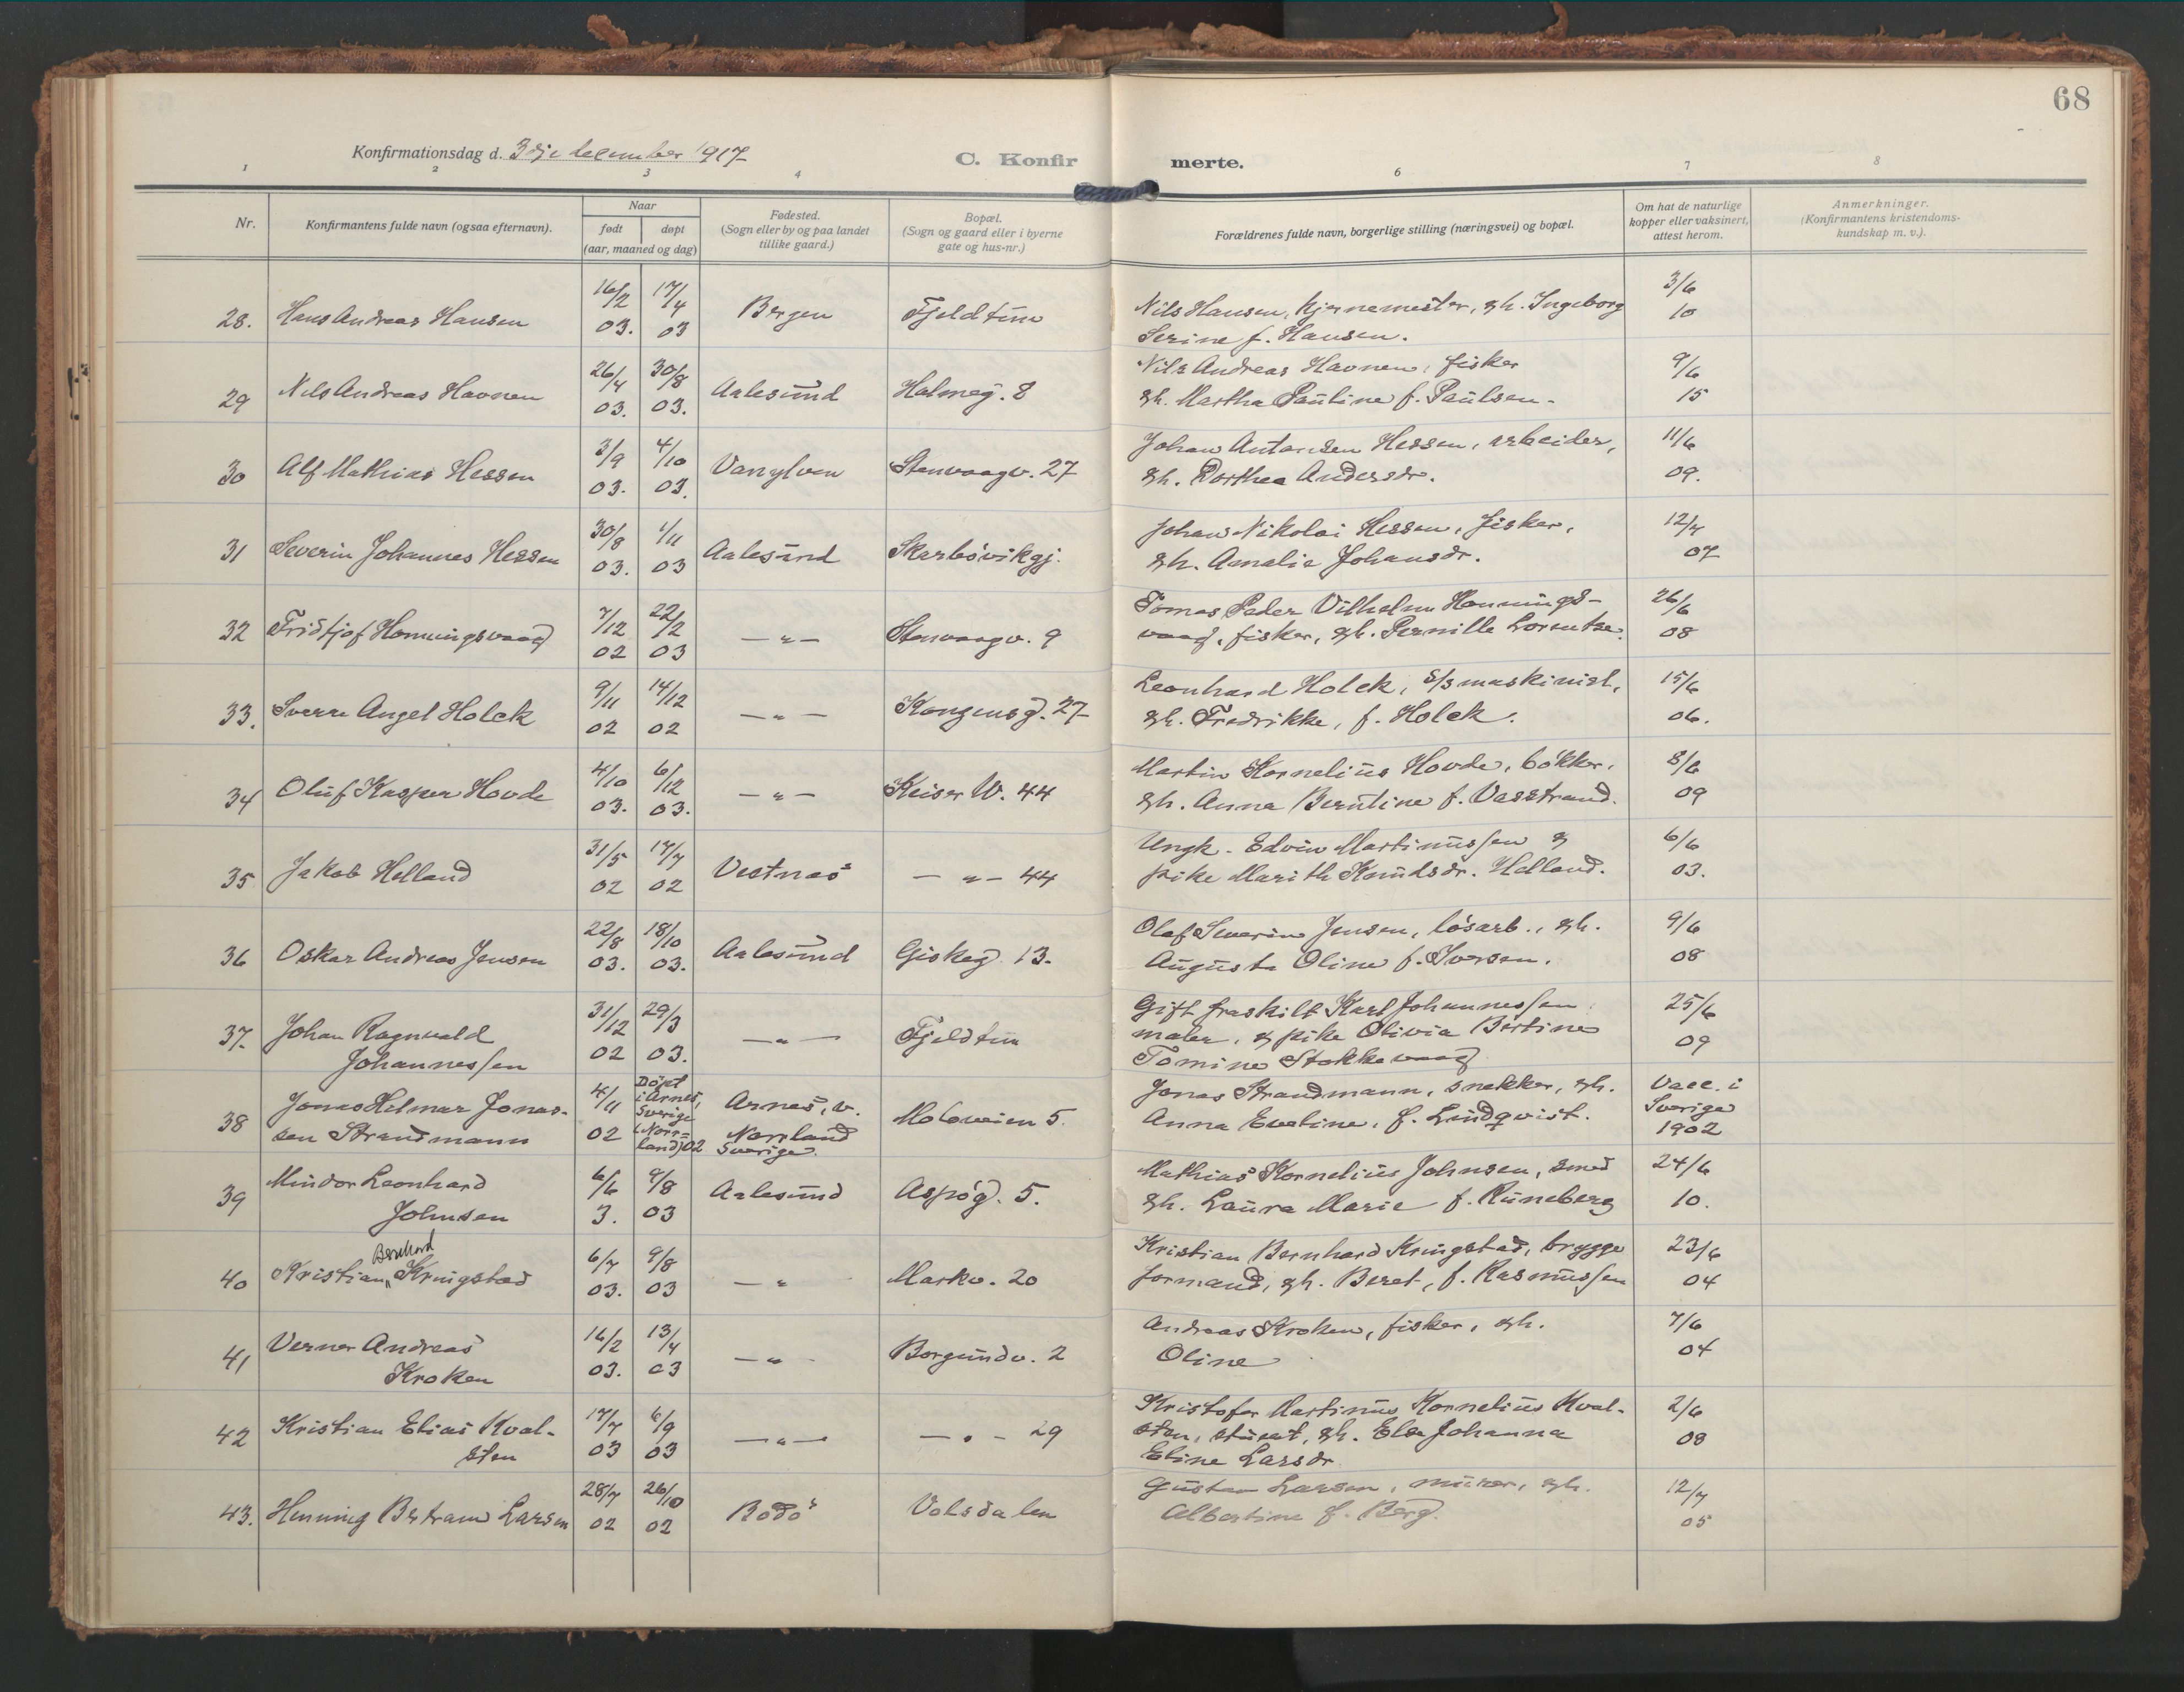 68
Konfirmationsdag d. 3dje december 1917
C. Konfirmerte.
1 2 3 4 6 7 8
Nr. | Konfirmantens fulde navn (ogsaa efternavn). | Naar født døpt (aar, maaned og dag) | Fødested. (Sogn eller by og paa landet tillike gaard.) | Bopæl. (Sogn og gaard eller i byerne gate og hus-nr.) | Forældrenes fulde navn, borgerlige stilling (næringsvei) og bopæl. | Om hat de naturlige kopper eller vaksinert, attest herom. | Anmerkninger. (Konfirmantens kristendoms-kundskap m. v.).
28. Hans Andreas Hansen 16/2 03. 17/4 03 Bergen Fjeldtun Nils Hansen, kjernemester, gh. Ingeborg 3/6 10
Serine f. Hansen.
29 Nils Andreas Havnen 26/4 03. 30/8 03. Aalesund Holmeg. 8 Nils Andreas Havnen, fisker 9/6 15
gh. Martha Pauline f. Paulsen.
30 Alf Mathias Hessen 3/9 03. 4/10 03. Vanylven Stenvaagv. 27 Johan Antonsen Hessen, arbeider, 11/6 09.
gh. Dorthea Andersdr.
31 Severin Johannes Hessen 30/8 03. 1/11 03 Aalesund Skarbövikgj. Johan Nikolai Hessen, fisker, 12/7 07
gh. Amalie Johansdr.
32 Fridtjof Honningsvaag 7/12 02 22/2 03 —„— Stenvaagv. 9 Tomas Peder Vilhelm Honnings- 26/6 08
vaag, fisker, gh. Pernille Lorentse.
33. Sverre Angel Holck 9/11 02 14/12 02 —„— Kongensg. 27 Leonhard Holck, S/S maskinist, 15/6 06.
gh. Fredrikke, f. Holck.
34 Oluf Kasper Hovde 4/10 03. 6/12 03. —„— Keiser W. 44 Martin Kornelius Hovde, bökker, 8/6 09
gh. Anna Berntine f. Vasstrand.
35 Jakob Helland 31/5 02 17/7 02 Vestnes —„— 44 Ungk. Edvin Martinussen & 6/6 03.
pike Marith Knudsdr. Helland.
36 Oskar Andreas Jensen 22/8 03. 18/10 03. Aalesund Giskeg. 13. Olaf Severin Jensen, lösarb., gh. 9/6 08
Augusta Oline f. Iversen.
37. Johan Ragnvald Johannessen 31/12 02 29/3 03. —„— Fjeldtun Gift fraskilt Karl Johannessen 25/6 09
maler, & pike Olivia Bertine
Tomine Stokkevaag
38 Jonas Helmer Jonas-
sen Strandmann 4/11 02 Döpt i Arnes, Sverige (Norr=land) 02 Arnes, v. Norrland Sverige. Moloveien 5. Jonas Strandmann, snekker, gh. Vacc. i Sverige 1902
Anna Eveline, f. Lindqvist.
39 Mindor Leonhard Johnsen 6/6 3. 9/8 03 Aalesund Aspög. 5. Mathias Kornelius Johnsen, smed 24/6 10.
gh. Laura Marie f. Runeberg
40 Kristian Bernhard Kringstad 6/7 03. 9/8 03 —„ Markv. 20 Kristian Bernhard Kringstad, brygge 23/6 04
formand, gh. Beret, f. Rasmussen
41 Verner Andreas Kroken 16/2 03. 13/4 03 —„ Borgundv. 2 Andreas Kroken, fisker, gh. 7/6 04
Oline
42 Kristian Elias Kval-
sten 17/7 03 6/9 03 —„— —„— 29 Kristofer Martinus Kornelius Kval- 2/6 08
sten, stuert, gh. Else Johanna
Eline Larsdr
43. Henning Bertram Larsen 28/7 02 26/10 02 Bodö Volsdalen Gustav Larsen, murer, gh. 12/7 05
Albertine f. Berg.